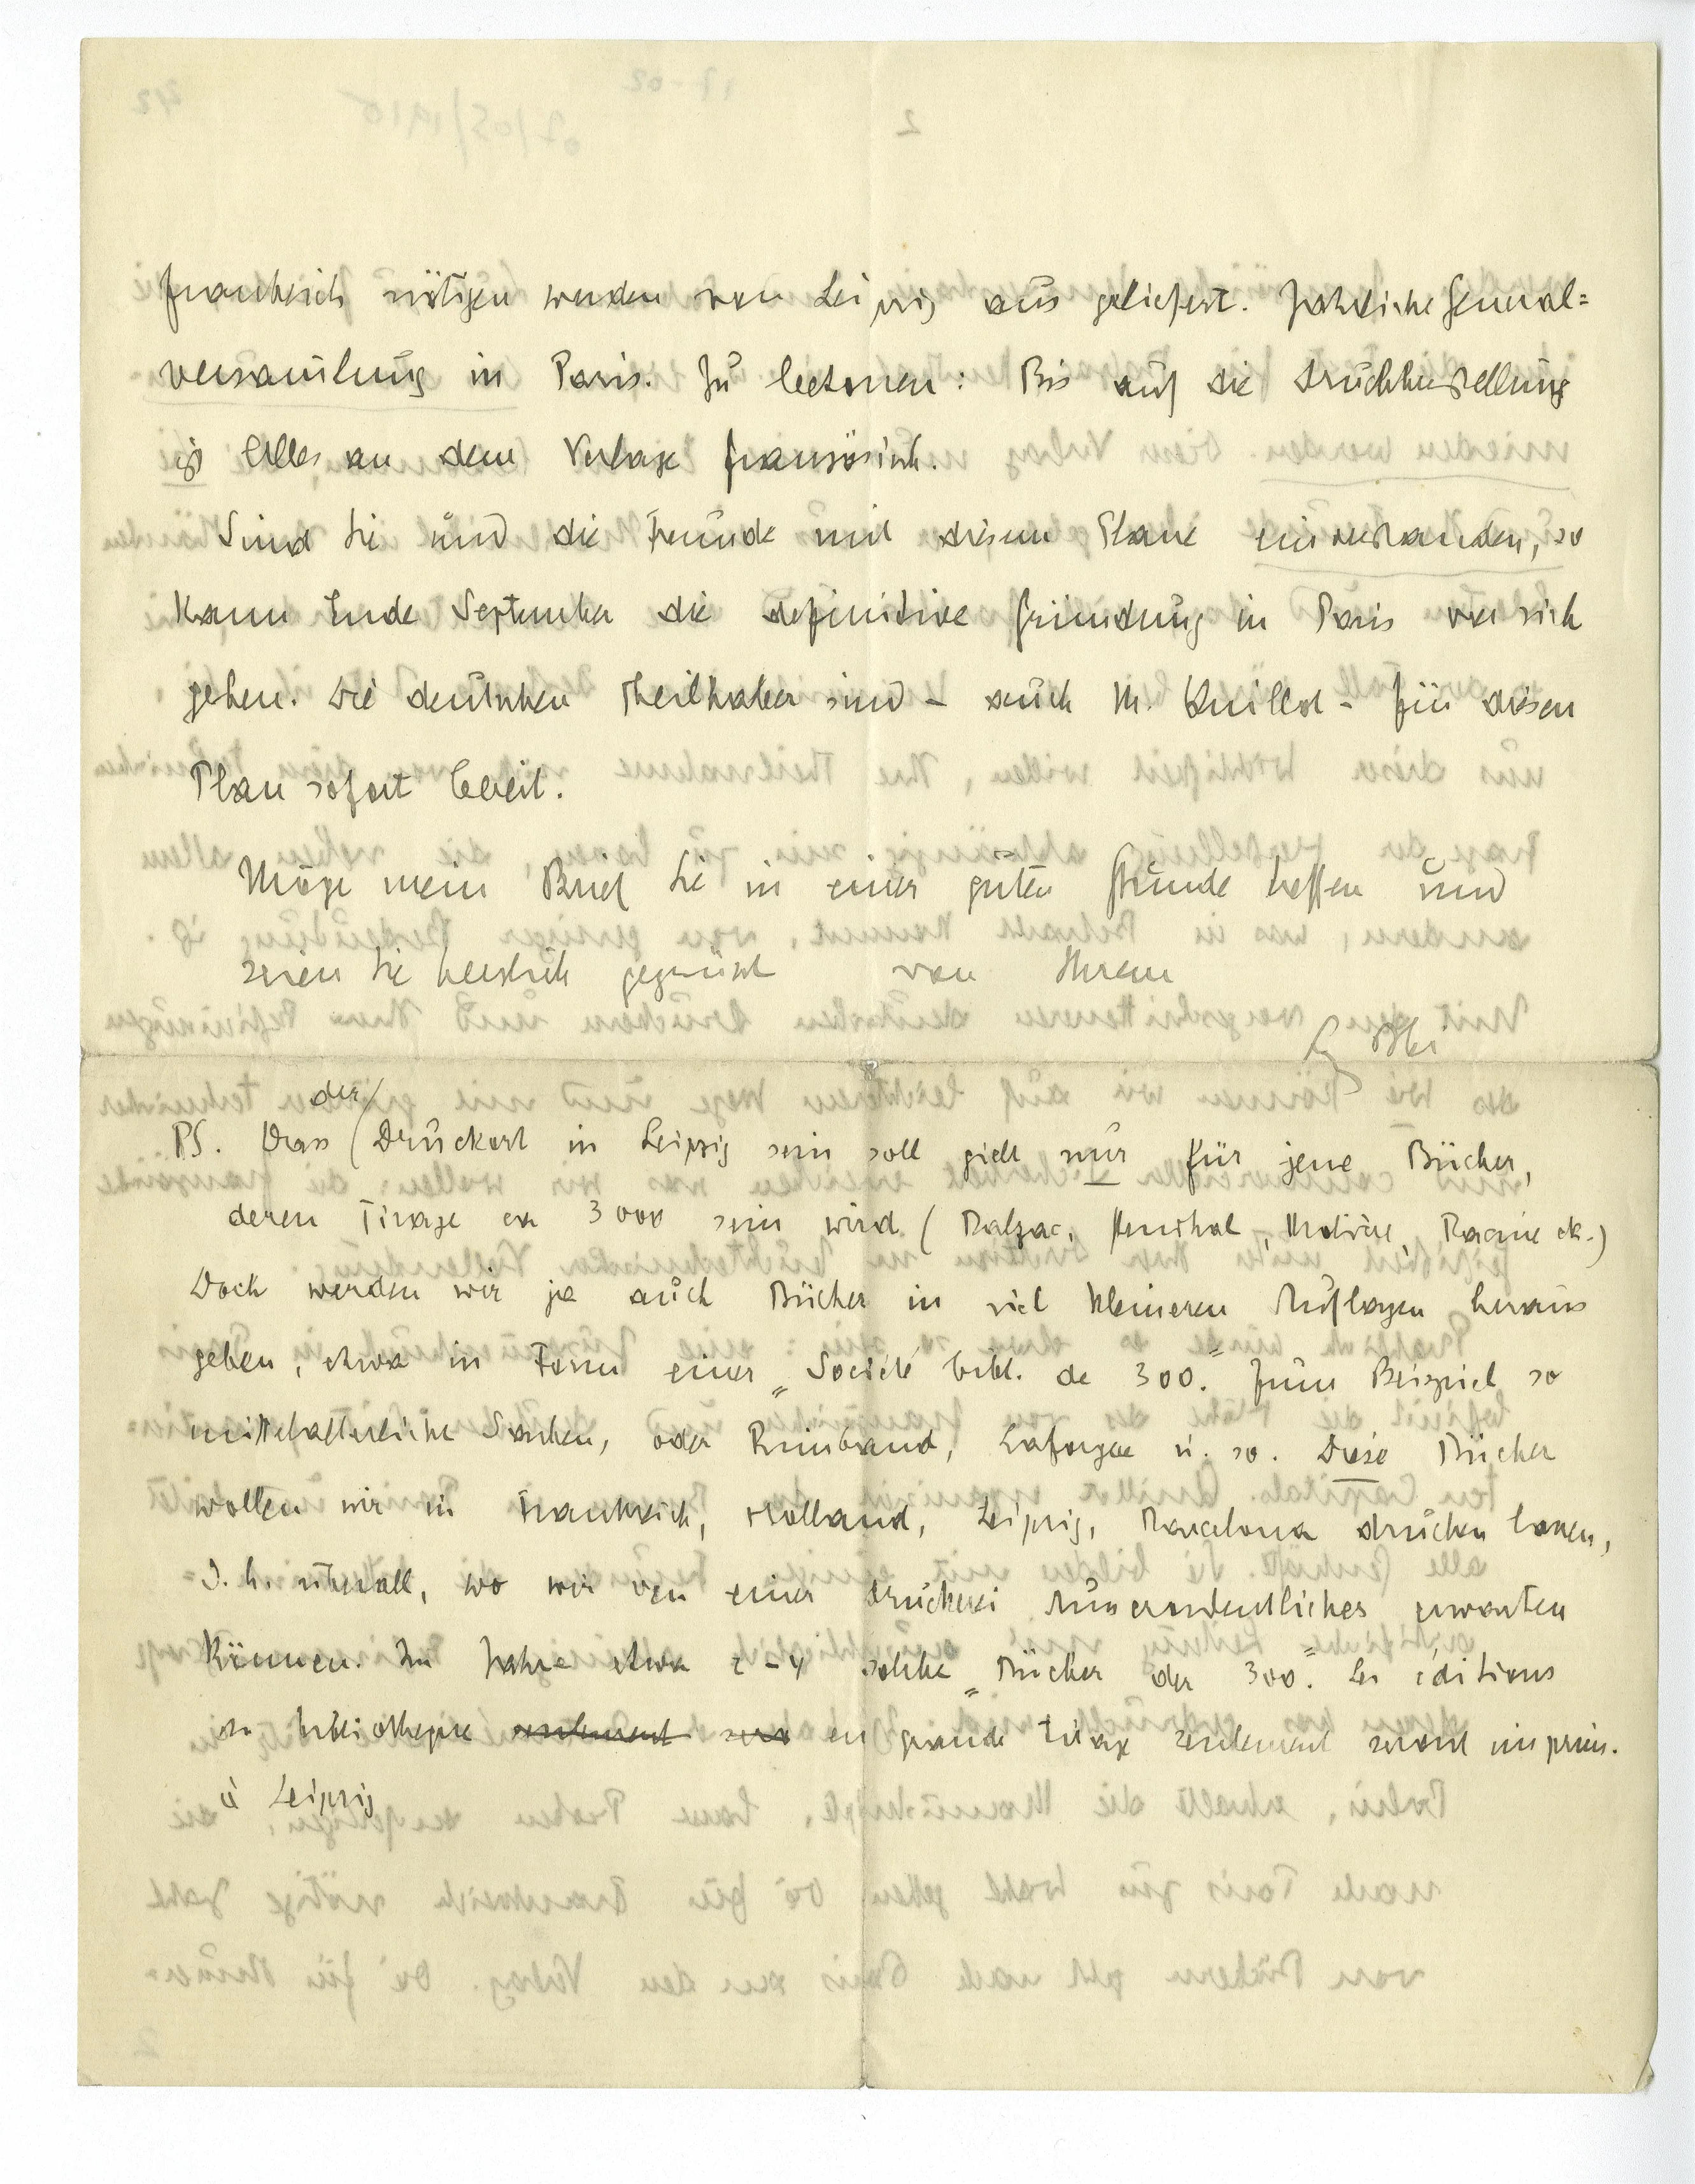 frankreich nötigen werden von Leipzig aus geliefert. Jährliche General=
versammlung in Paris. Zu betonen: Bis auf die Druckherstellung
ist Alles an dem Verlage französisch.
Sind Sie und die Freunde mit diesem Plane einverstanden, so
kann Ende September die definitive Gründung in Paris vor sich
gehen. Die deutschen Theilhaber sind – auch M. Quillot – für diesen
Plan sofort bereit.
Möge mein Brief Sie in einer guten Stunde treffen und
seien Sie herzlich gegrüsst von Ihrem
der/
PS. Dass (Druckort in Leipzig sein soll gielt nur für jene Bücher,
deren Tirage ca 3000 sein wird (Balzac, Stendhal, Molière, Racine etc.)
Doch werden wir ja auch Bücher in viel kleineren Auflagen heraus
geben, etwa in Form einer „Société bibl. de 300." Zum Beispiel so
mittelalterliche Sachen, oder Rimbaud, Laforgue u. so. Diese Bücher
wollen wir in Frankreich, Holland, Leipzig, Barcelona drucken lassen,
d. h. überall, wo wir von einer Druckerei Ausserordentliches erwarten
können. Im Jahre etwa 2–4 solche „Bücher der 300." Les éditions
de bibliothèque seulement sero en grande tirage seulement seront imprim.
à Leipzig